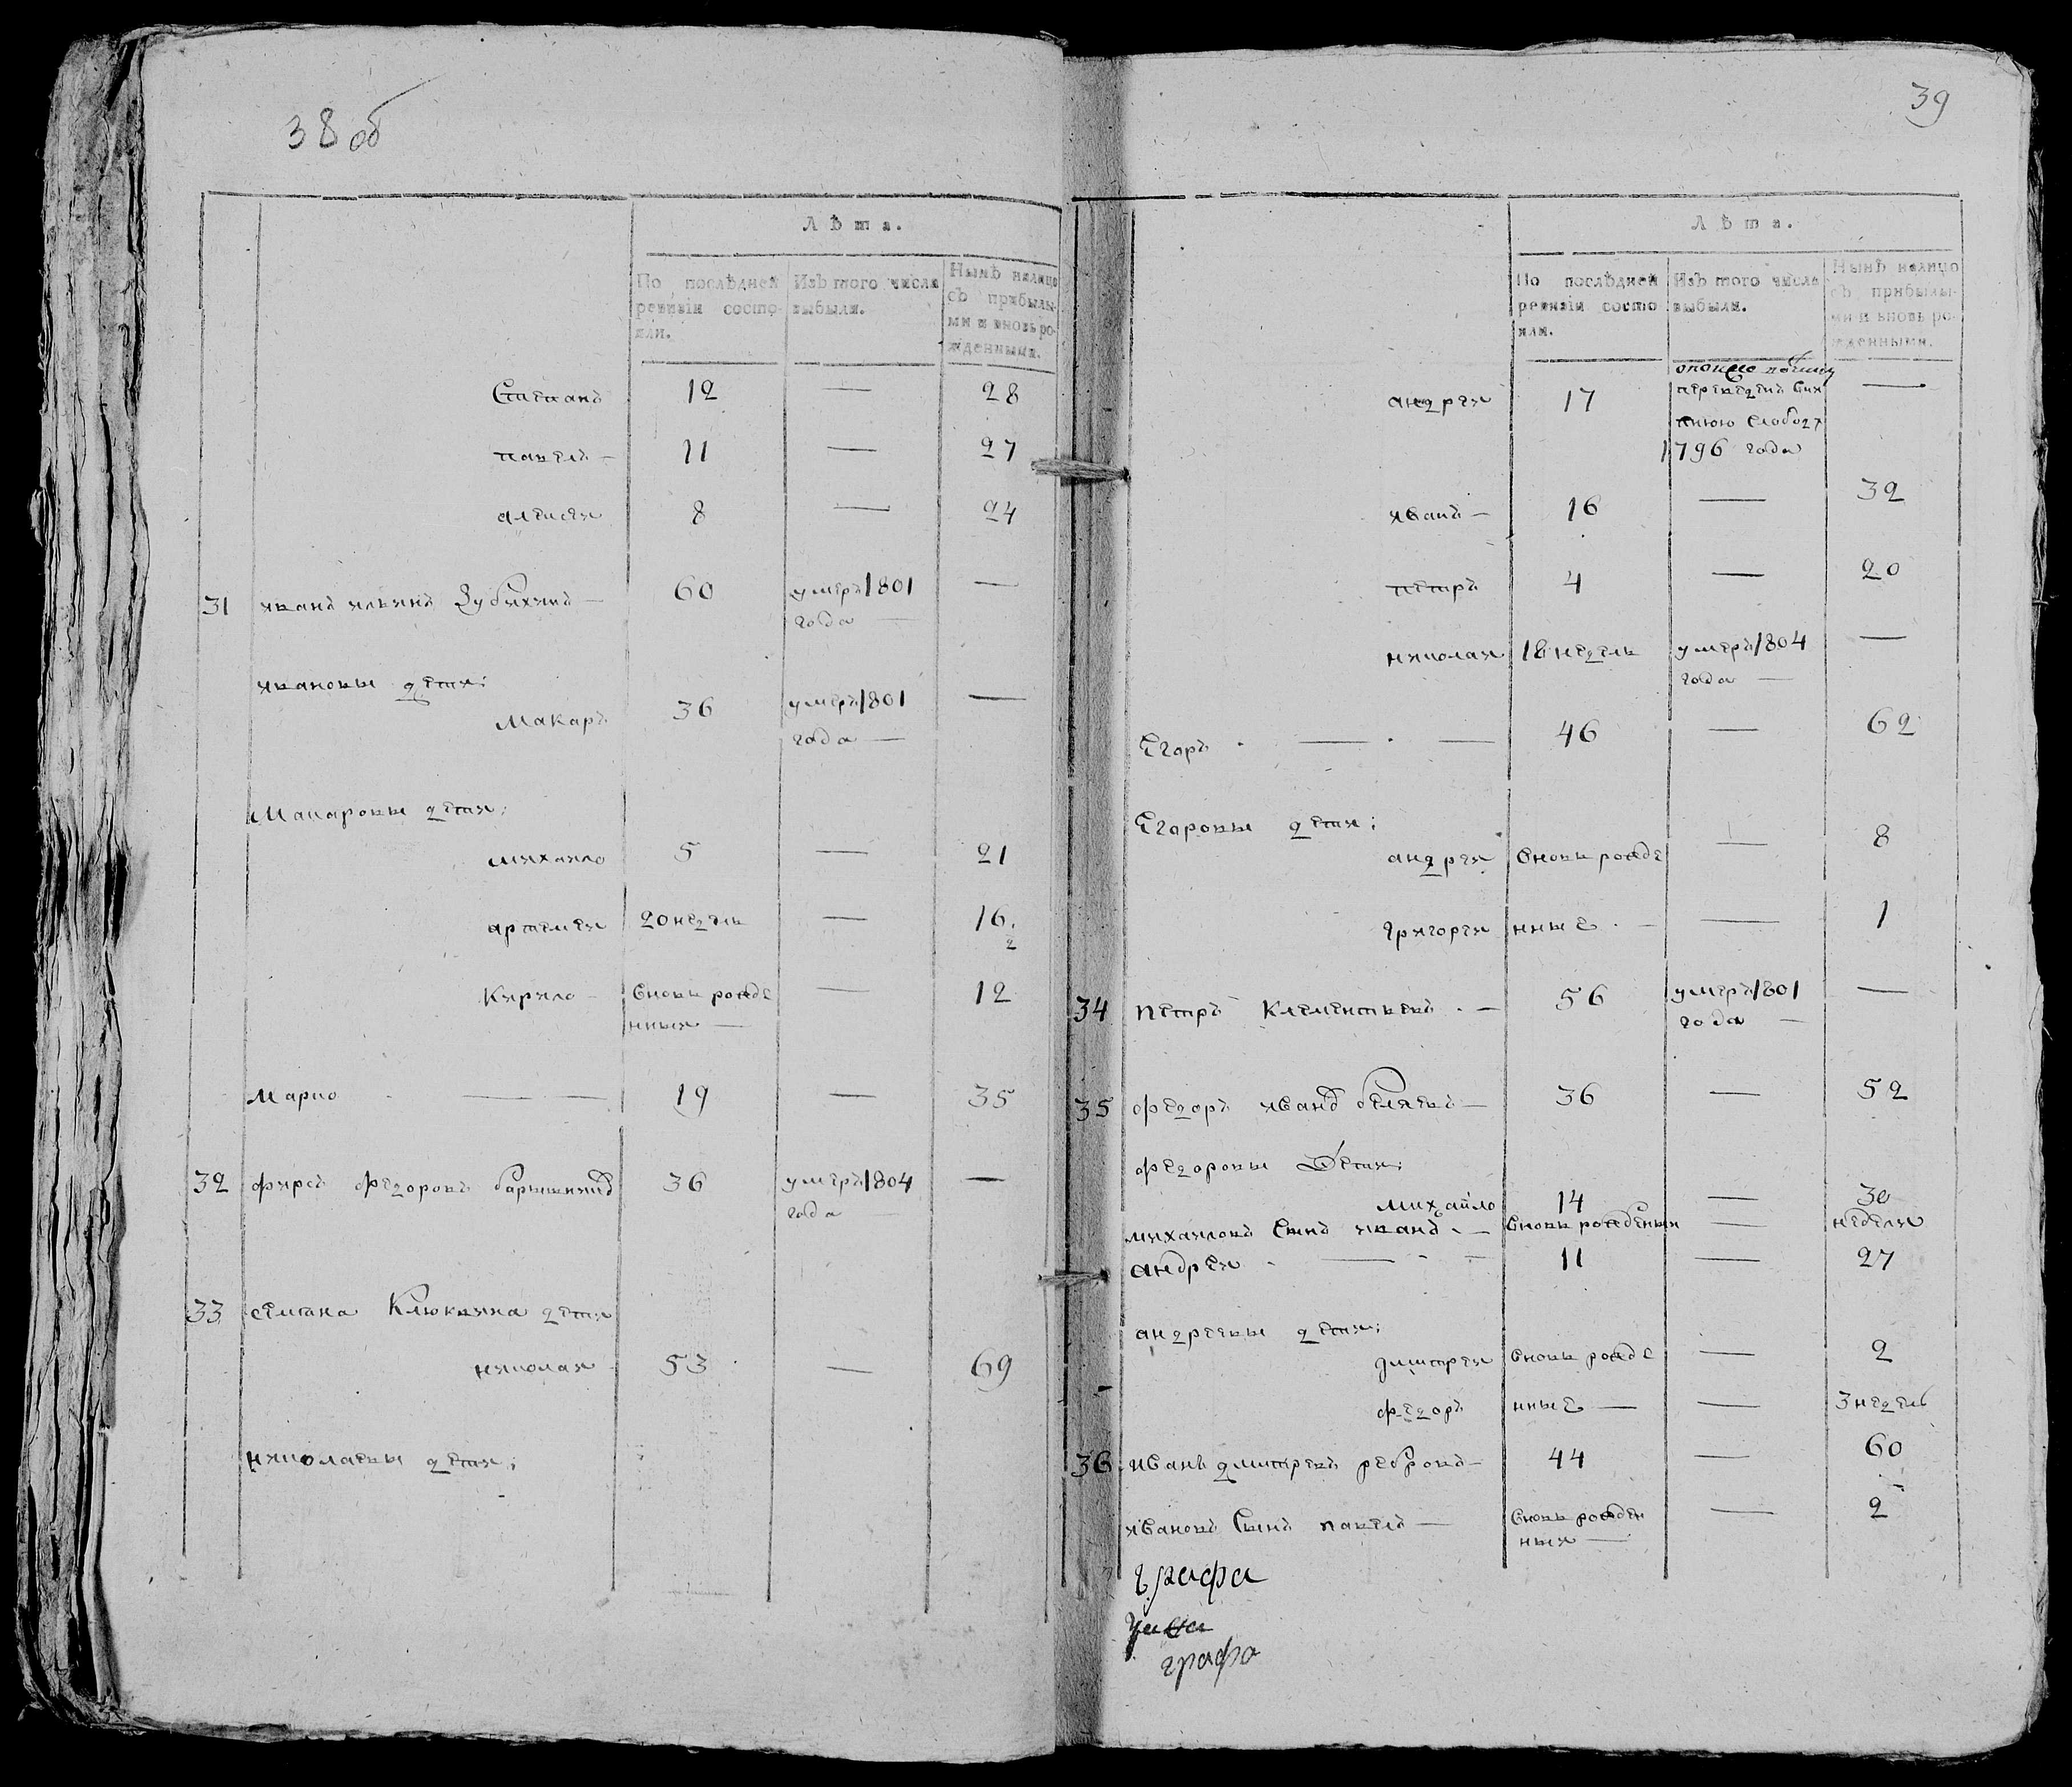 38 об
Лѣта.
По послѣдней ревизіи состояли.
Изъ того числа выбыли.
Нынѣ налицо съ прибылыми и вновь рожденными.
Степанъ 12 — 28
павелъ — 11 — 27
алексеи 8 — 24
31 иванъ ильинъ Зубихинъ — 60 умеръ 1801 —
года —
ивановы дети:
Макаръ 36 умеръ 1801 —
года —
Макаровы дети:
михаило 5 — 21
артемеи 20 недель — 16.
2
Кирило — вновь рожде — 12
нныи —
Марко — — 19 — 35
32 фирсъ Федоровъ барышник 36 умеръ 1804 —
года —
33 семиона Клюквина дети
николаи 53 — 69
николаевы дети:
39
Лѣта.
По послѣдней ревизіи состояли.
Изъ того числа выбыли.
Нынѣ налицо съ прибылыми и вновь рожденными.
андреи 17 переведенъ —
слободу
1796 года
иванъ — 16 — 32
петръ 4 — 20
николаи 18 недель умеръ 1804 —
года —
Егоръ — — 46 — 62
Егоровы дети:
андреи вновь рожде — 8
григореи нные — — 1
34 петръ Клементьевъ — 56 умеръ 1801 —
года —
35 федоръ иванъ беляевъ — 36 — 52
федоровы Дети:
михаило 14 — 30
михаиловъ Сынъ иванъ — вновь рожденыи — недели
андреи — 11 — 27
андреевы дети:
дмитреи вновь рожде — 2
федоръ нные — — 3 недель
36 иванъ дмитревъ ребровъ — 44 — 60
ивановъ Сынъ павелъ — вновь рожден — 2
ныи —
графа
графа